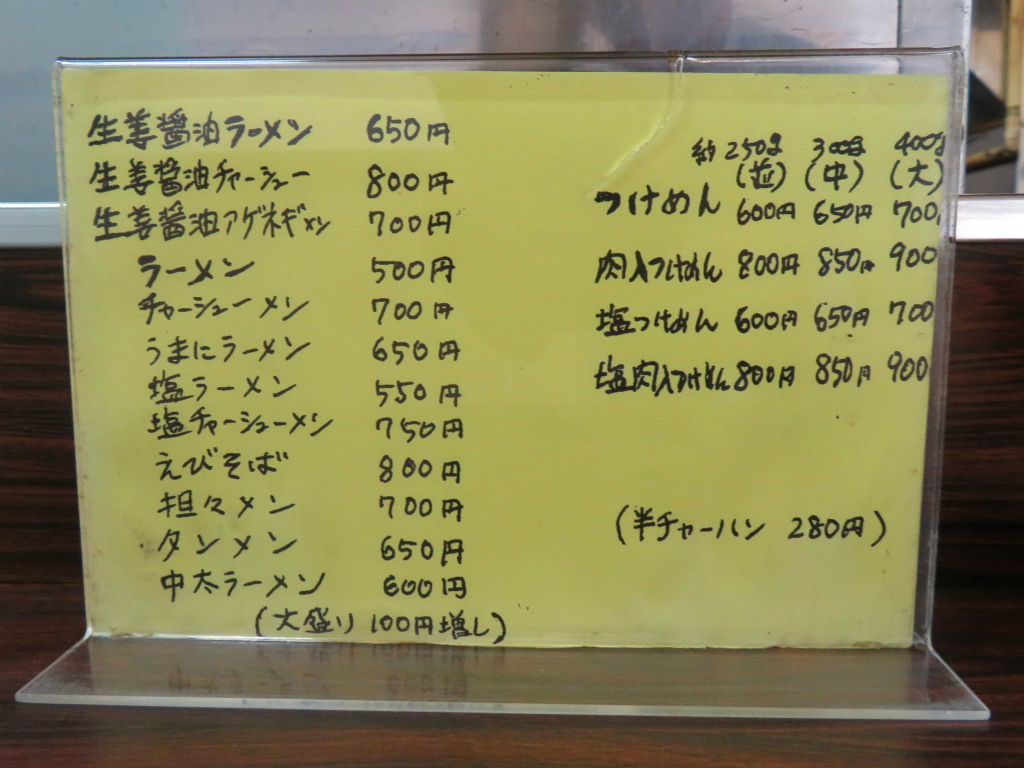 生姜醤油ラーメン 650円
生姜醤油チャーシュー 800円
生姜醤油アゲネギメン 700円
ラーメン 500円
チャーシューメン 700円
うまにラーメン 650円
塩ラーメン 550円
塩チャーシューメン 750円
えびそば 800円
担々メン 700円
タンメン 650円
中太ラーメン 600円
(大盛り 100円増し)
約250g 300g 400g
(並) (中) (大)
つけめん 600円 650円 700
肉入つけめん 800円 850円 900
塩つけめん 600円 650円 700
塩肉入つけめん 800円 850円 900
(半チャーハン 280円)